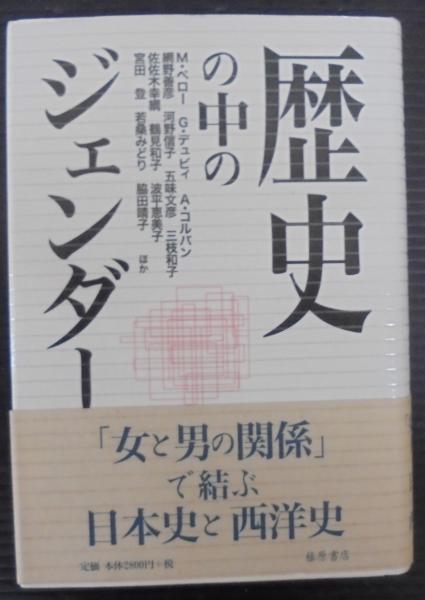 歴史
の中の
ジェンダー
M・ペロー G・デュビィ A・コルバン
網野善彦 河野信子 五味文彦 三枝和子
佐佐木幸綱 鶴見和子 波平恵美子
宮田 登 若桑みどり 脇田晴子 ほか
「女と男の関係」
で結ぶ
日本史と西洋史
定価 本体2800円+税
藤原書店